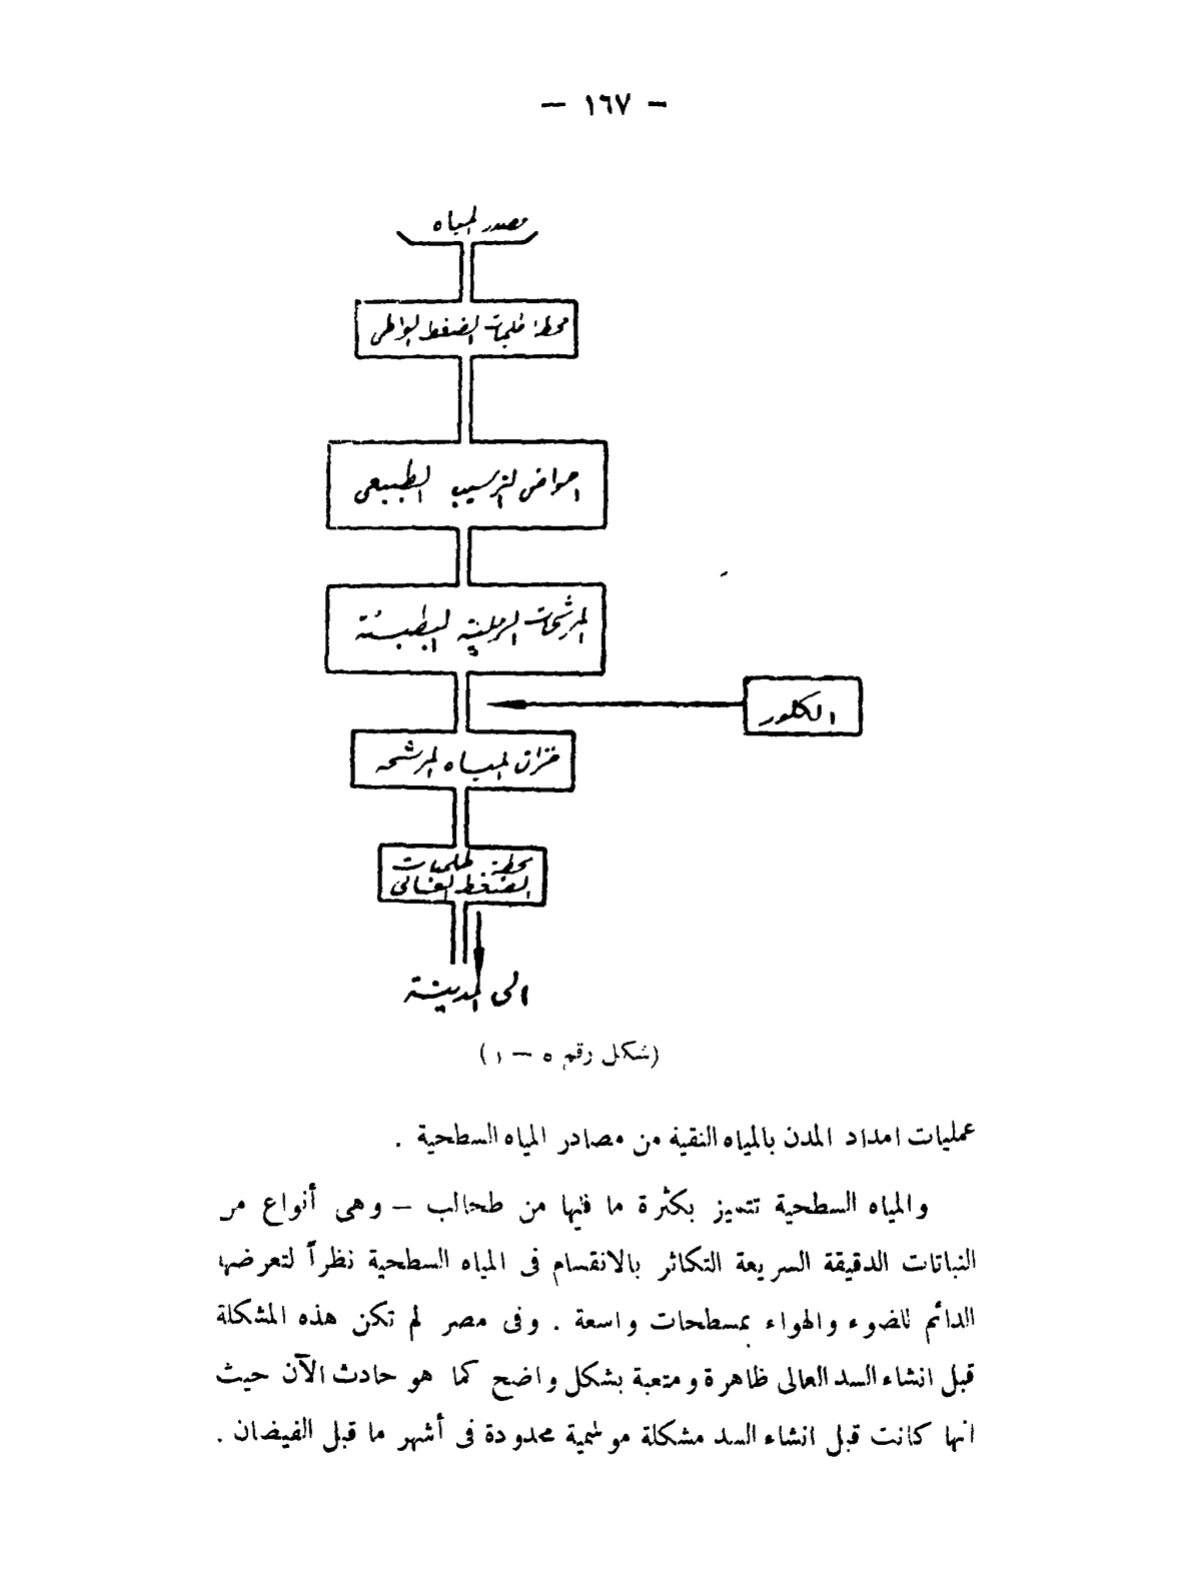 — ١٦٧ —
مصدر المياه
محطة طلمبات الضغط الواطى
احواض الترسيب الطبيعى
المرشحات الرملية البطيئة
الكلور
خزان المياه المرشحه
محطة طلمبات
الضغط العالى
الى المدينة
(شكل رقم ٥ — ١)
عمليات امداد المدن بالمياه النقية من مصادر المياه السطحية .
والمياه السطحية تتميز بكثرة ما فيها من طحالب — وهى أنواع من
النباتات الدقيقة السريعة التكاثر بالانقسام فى المياه السطحية نظراً لتعرضها
الدائم للضوء والهواء بمسطحات واسعة . وفى مصر لم تكن هذه المشكلة
قبل انشاء السد العالى ظاهرة ومتعبة بشكل واضح كما هو حادث الآن حيث
انها كانت قبل انشاء السد مشكلة موسمية محدودة فى أشهر ما قبل الفيضان .